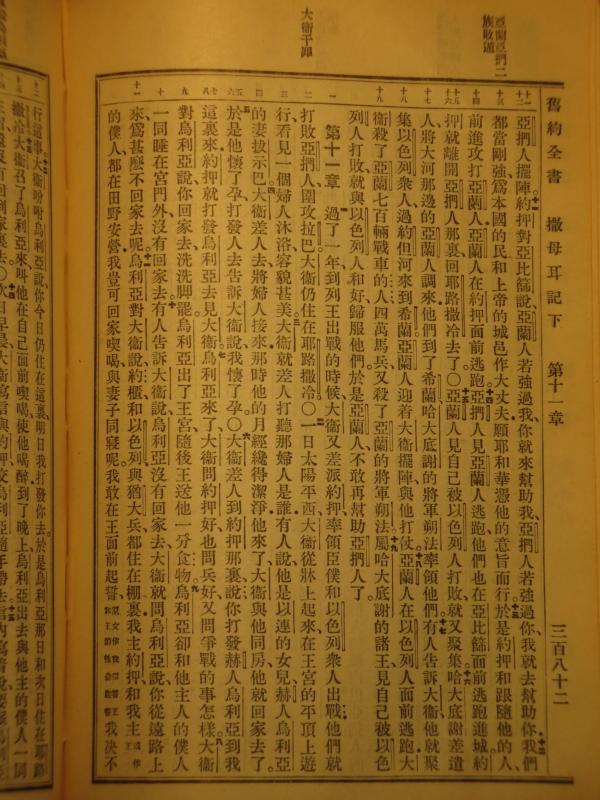 亞蘭亞捫二族敗遁
大衛干罪
舊約全書 撒母耳記下 第十一章 三百八十二
亞捫人擺陣約押對亞比篩說亞蘭人若強過我你就來幫助我亞捫人若強過你我就去幫助你我們
都當剛強爲本國的民和上帝的城邑作大丈夫願耶和華憑他的意旨而行於是約押和跟隨他的人
前進攻打亞蘭人亞蘭人在約押面前逃跑亞捫人見亞蘭人逃跑他們也在亞比篩面前逃跑進城約
押就離開亞捫人那裏回耶路撒冷去了〇亞蘭人見自己被以色列人打敗就又聚集哈大底謝差遣
人將大河那邊的亞蘭人調來他們到了希蘭哈大底謝的將軍朔法率領他們有人告訴大衛他就聚
集以色列衆人過約但河來到希蘭亞蘭人迎着大衛擺陣與他打仗亞蘭人在以色列人面前逃跑大
衛殺了亞蘭七百輛戰車的人四萬馬兵又殺了亞蘭的將軍朔法屬哈大底謝的諸王見自己被以色
列人打敗就與以色列人和好歸服他們於是亞蘭人不敢再幫助亞捫人了
第十一章 過了一年到列王出戰的時候大衛又差派約押率領臣僕和以色列衆人出戰他們就
打敗亞捫人圍攻拉巴大衛仍住在耶路撒冷〇一日太陽平西大衛從牀上起來在王宮的平頂上遊
行看見一個婦人沐浴容貌甚美大衛就差人打聽那婦人是誰有人說他是以連的女兒赫人烏利亞
的妻拔示巴大衛差人去將婦人接來那時他的月經纔得潔淨他來了大衛與他同房他就回家去了
於是他懷了孕打發人去告訴大衛說我懷了孕〇大衛差人到約押那裏說你打發赫人烏利亞到我
這裏來約押就打發烏利亞去見大衛烏利亞來了大衛問約押好也問兵好又問爭戰的事怎樣大衛
對烏利亞說你回家去洗洗脚罷烏利亞出了王宮隨後王送他一分食物烏利亞卻和他主人的僕人
一同睡在宮門外沒有回家去有人告訴大衛說烏利亞沒有回家去大衛就問烏利亞說你從遠路上
來爲甚麽不回家去呢烏利亞對大衛說約櫃和以色列與猶大兵都住在棚裏我主約押和我主
的僕人都在田野安營我豈可回家喫喝與妻子同寢呢我敢在王面前起誓我決不
行這事大衛吩咐烏利亞說你今日仍住在這裏明日我打發你去於是烏利亞那日和次日住在耶路
撒冷大衛召了烏利亞來叫他在自己面前喫喝使他喝醉到了晚上烏利亞出去與他主的僕人一同